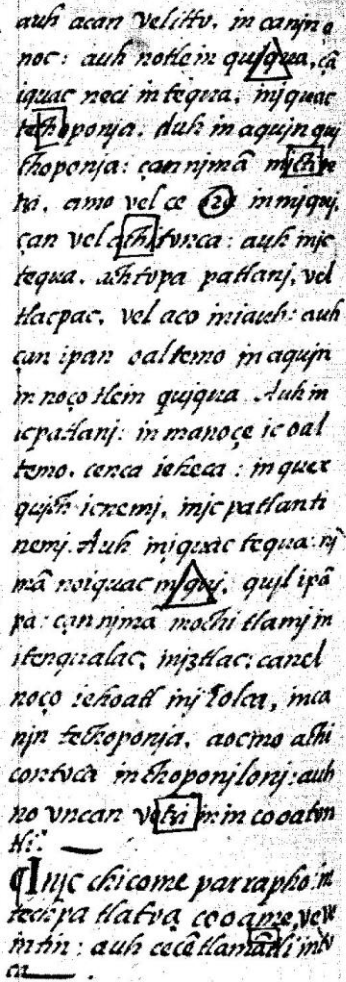 auh acan velittv, in canjn o
noc: auh notlein quiqua, cã
iquac neci in tequa, injquac
techoponja. Auh in aquin qui
choponja: çan njmã mich
amo vel ce ora in miquj,
çan vel achitonca: auh injc
tequa, achtopa patlanj, vel
tlacpac, vel aco in iauh: auh
çan ipan oaltemo in aquin
in noço tlein quiqua. Auh in
icpatlanj: in manoçe ic oal
temo, cenca ieheca: in quex
quich icnemj, injc patlanti
nemj. Auh injquac tequa: nj
mã noiquac mjquj, quil ipã
pa: çan njma mochi tlamj in
itenqualac, injztlac: canel
noço iehoatl inj iolca, inca
njn techoponja, aocmo achi
contoca in choponjlonj: auh
no vncan votzi in in cooaton
tli.
¶ Injc chicome parrapho: in
techpa tlatoa cooame, vevei
intin: auh cecẽ tlamãtli into
ca